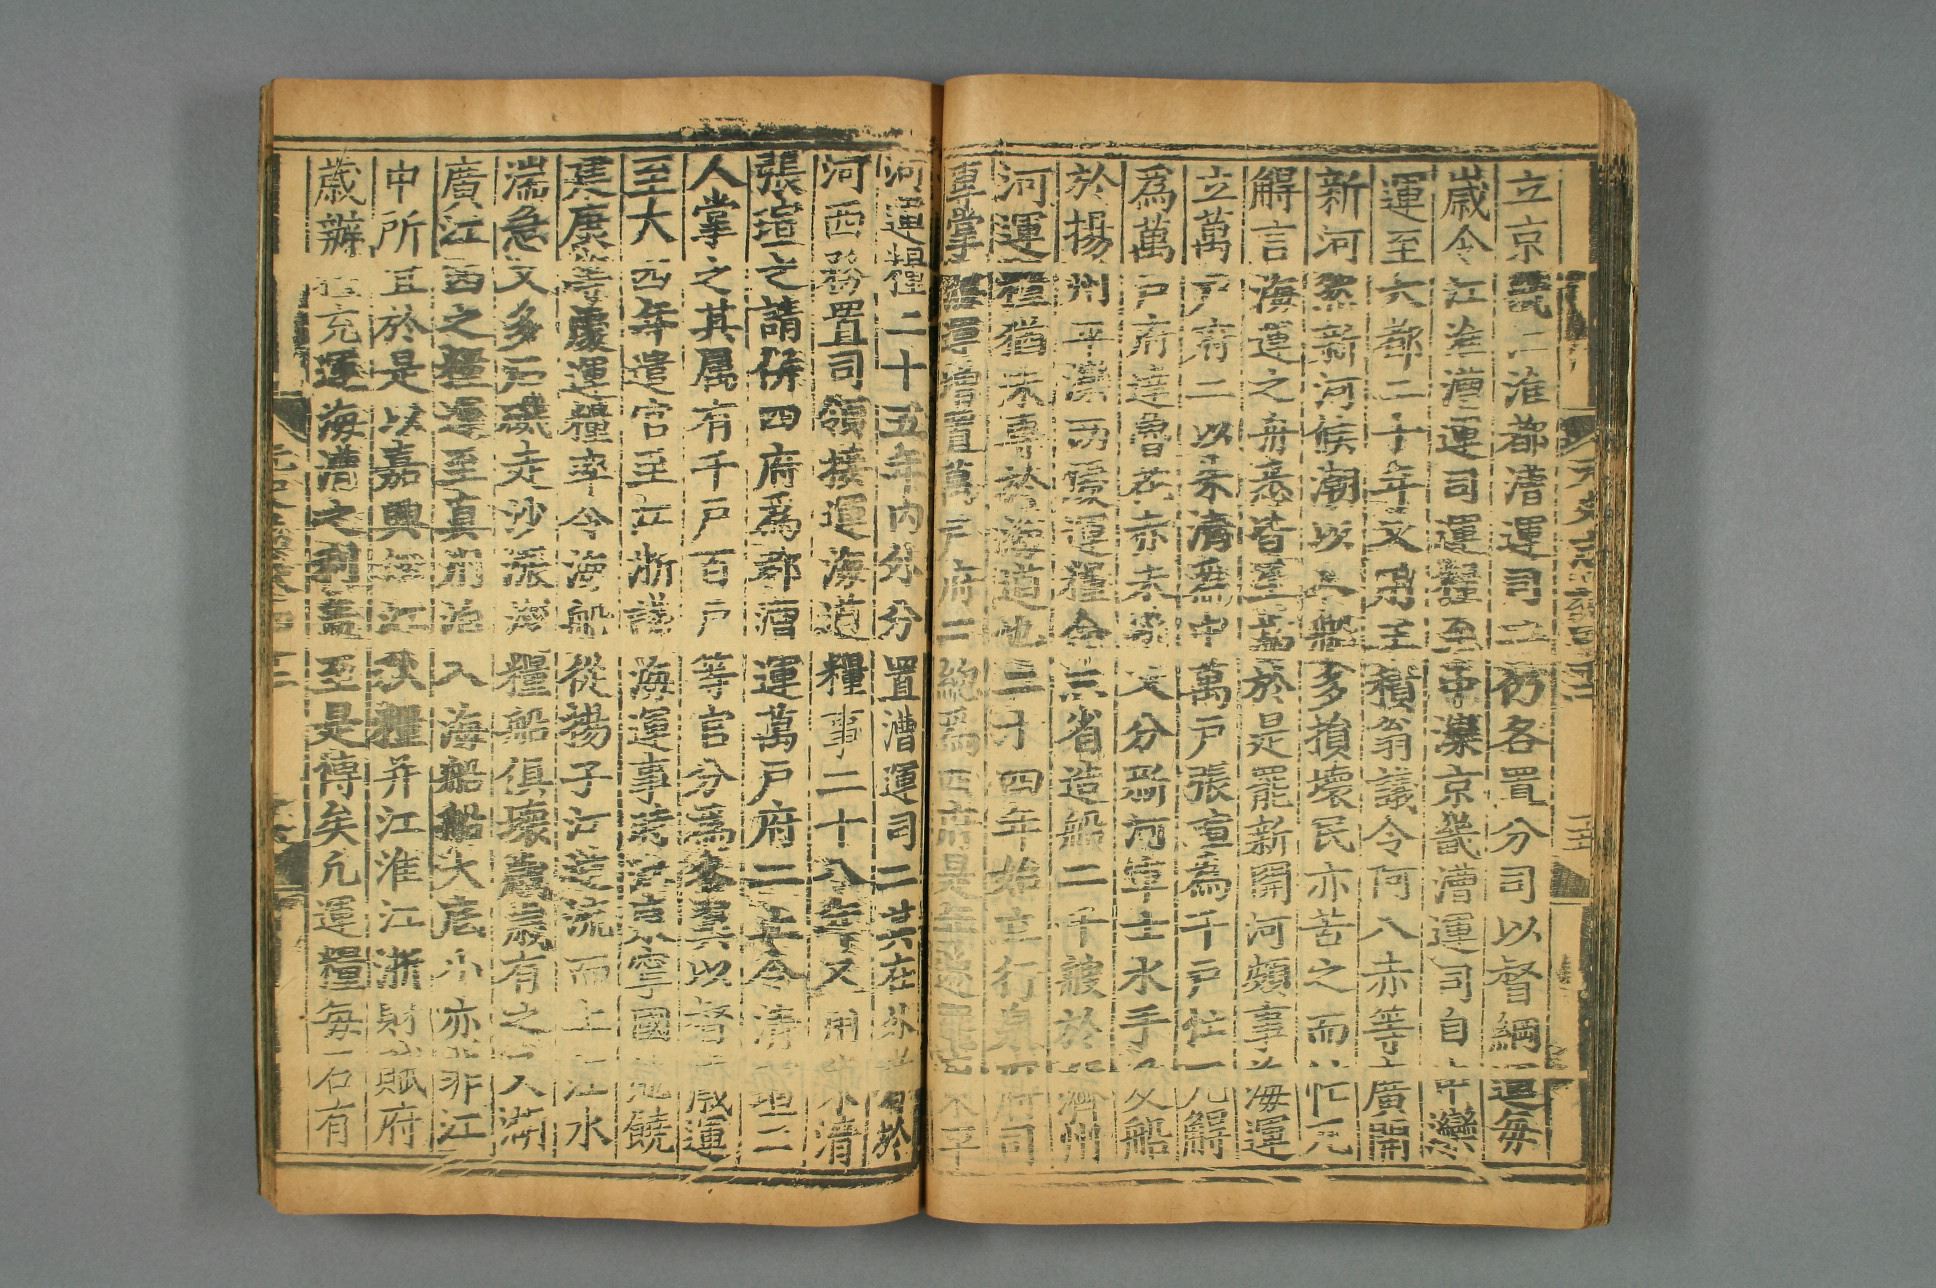 立京畿江淮都漕運司二仍各置分司以督綱運每
歲令江淮漕運司運糧至中灤京畿漕運司自中灤
運至大都二十年又用王積翁議令阿八赤等廣開
新河然新河候潮以入船多損壞民亦苦之而忙兀
䚟言海運之舟悉皆至焉於是罷新開河頗事海運
立萬戶府二以朱清爲中萬戶張瑄爲千戶忙兀䚟
爲萬戶府達魯花赤未幾又分新河軍士水手及船
於揚州平灤兩處運糧命三省造船二千艘於濟州
河運糧猶未專於海道也二十四年始立行泉府司
專掌海運增置萬戶府二緫爲四府是年遂罷東平
河運糧二十五年內外分置漕運司二其在外者於
河西務置司領接運海道糧事二十八年又用朱清
張瑄之請併四府爲都漕運萬戶府二止令清瑄二
人掌之其属有千戶百戶等官分爲各翼以督歲運
至大四年遣官至江浙議海運事時江東寧國池饒
建康等處運糧率令海船從揚子江逆流而上江水
湍急又多石磯走沙漲淺糧船俱壞歲歲有之又湖
廣江西之糧運至真州泊入海船船大底小亦非江
中所宜於是以嘉興松江秋糧并江淮江浙財賦府
歲辦糧充運海漕之利蓋至是博矣凡運糧每石有